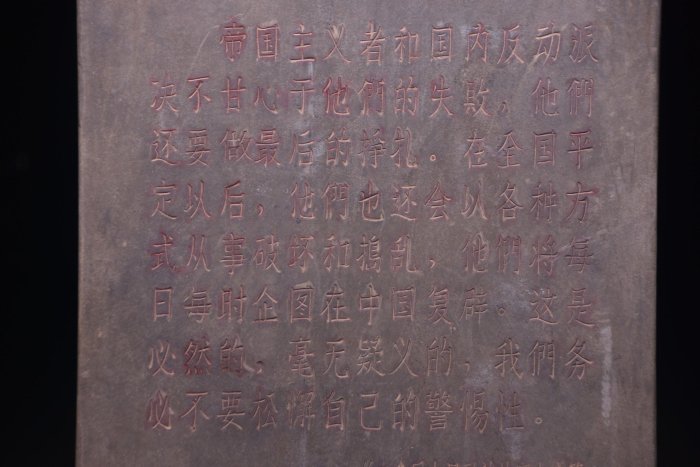 帝国主义者和国内反动派
决不甘心于他們的失敗，他們
还要做最后的挣扎。在全国平
定以后，他們也还会以各种方
式从事破坏和搗乱，他們将每
日每时企图在中国复辟。这是
必然的，毫无疑义的，我們务
必不要松懈自己的警惕性。